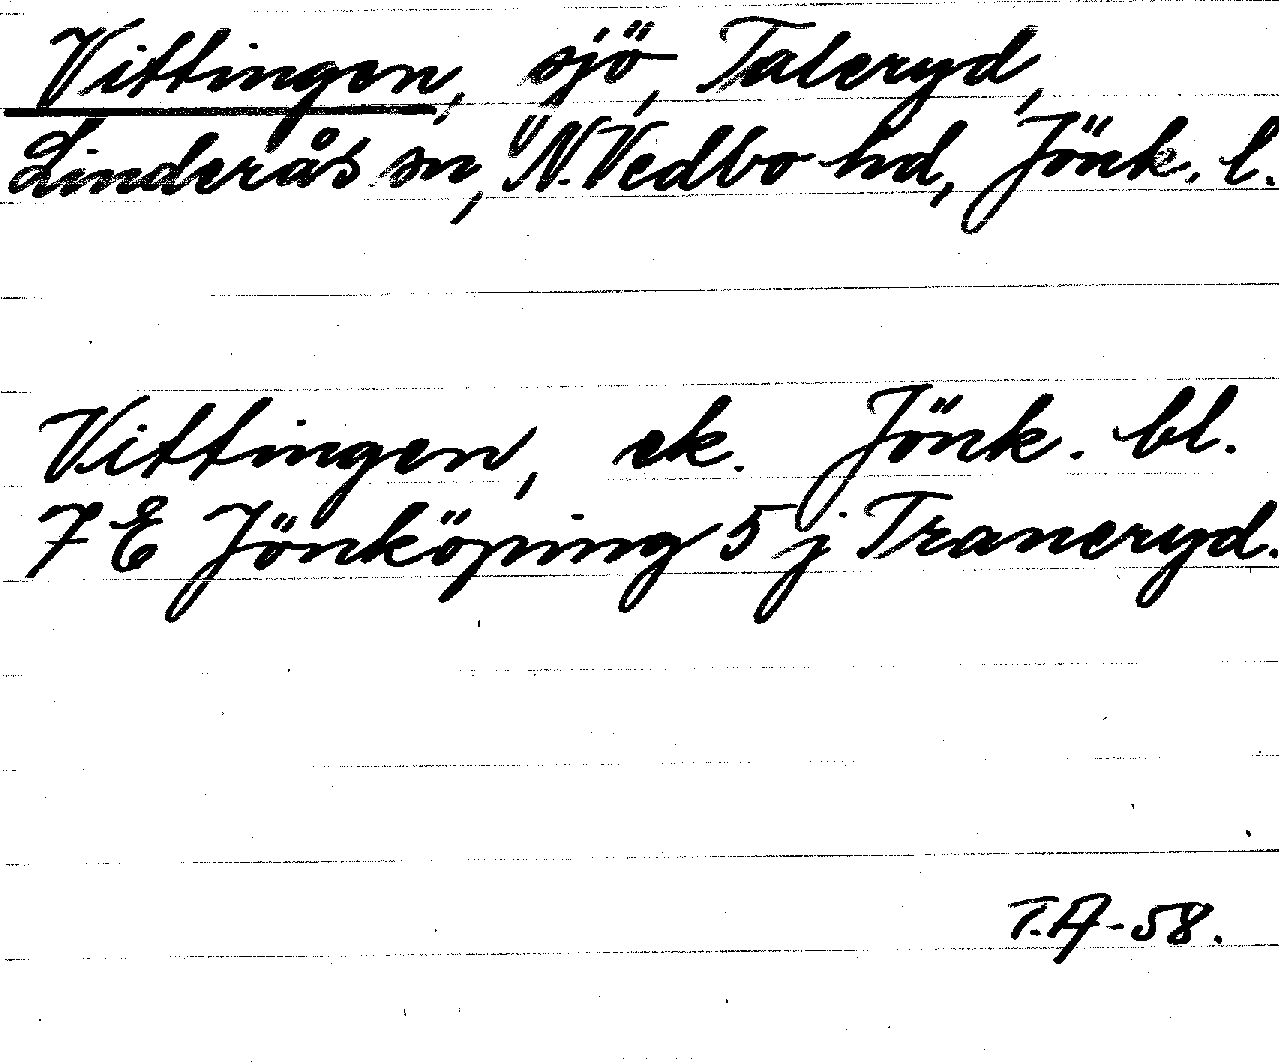 Vittingen, sjö, Taleryd,
Linderås sn, N. Vedbo hd, Jönk. l.
Vittingen, ek. Jönk. bl.
7 E Jönköping 5 j Traneryd.
T.A-58.